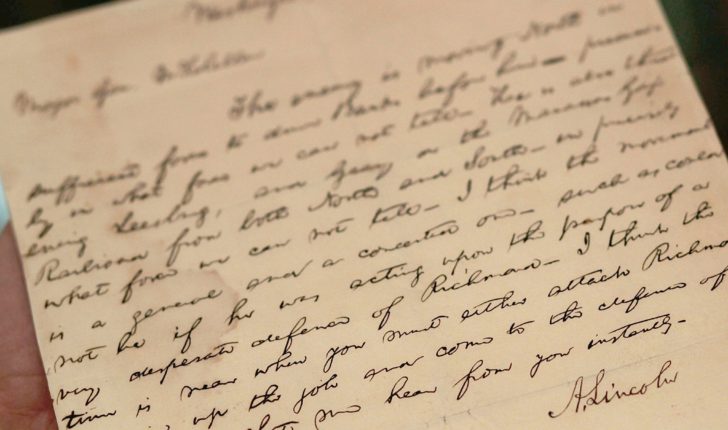 Washing
Major Gen McClellan
The enemy is moving North in
sufficient force to drive Banks before him — precise
ly in what force we can not tell— He is also threat
ening Leesburg, and Geary on the Manassas Gap
Railroad from both North and South— in precisely
what force we can not tell— I think the movement
is a general and a concerted one— such as could
not be if he was acting upon the purpose of a
very desperate defence of Richmond— I think the
time is near when you must either attack Richmo
up the job and come to the defence of
me hear from you instantly—
A. Lincoln